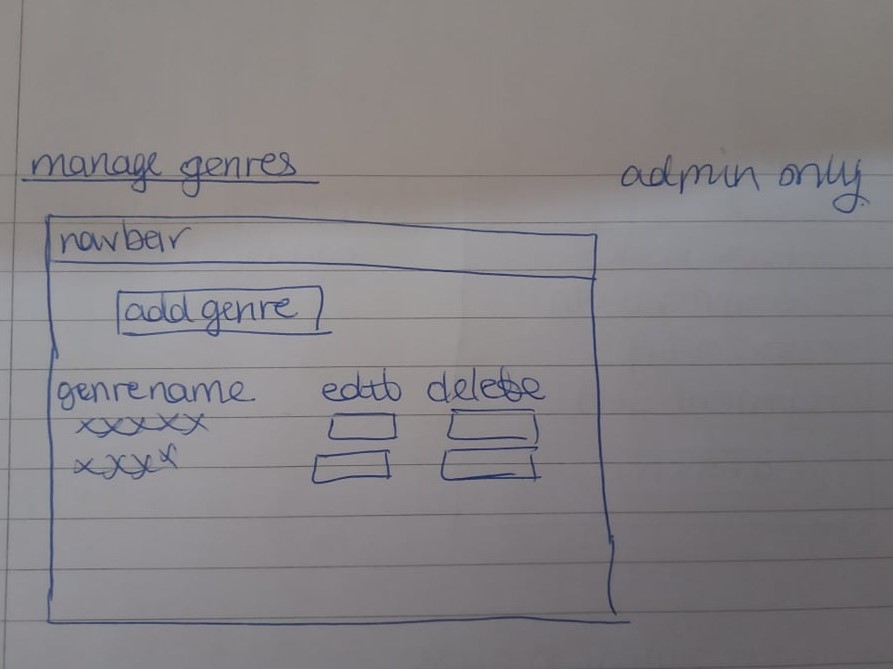 manage genres admin only
navbar
add genre
genrename edit delete
xxxxx
xxxx